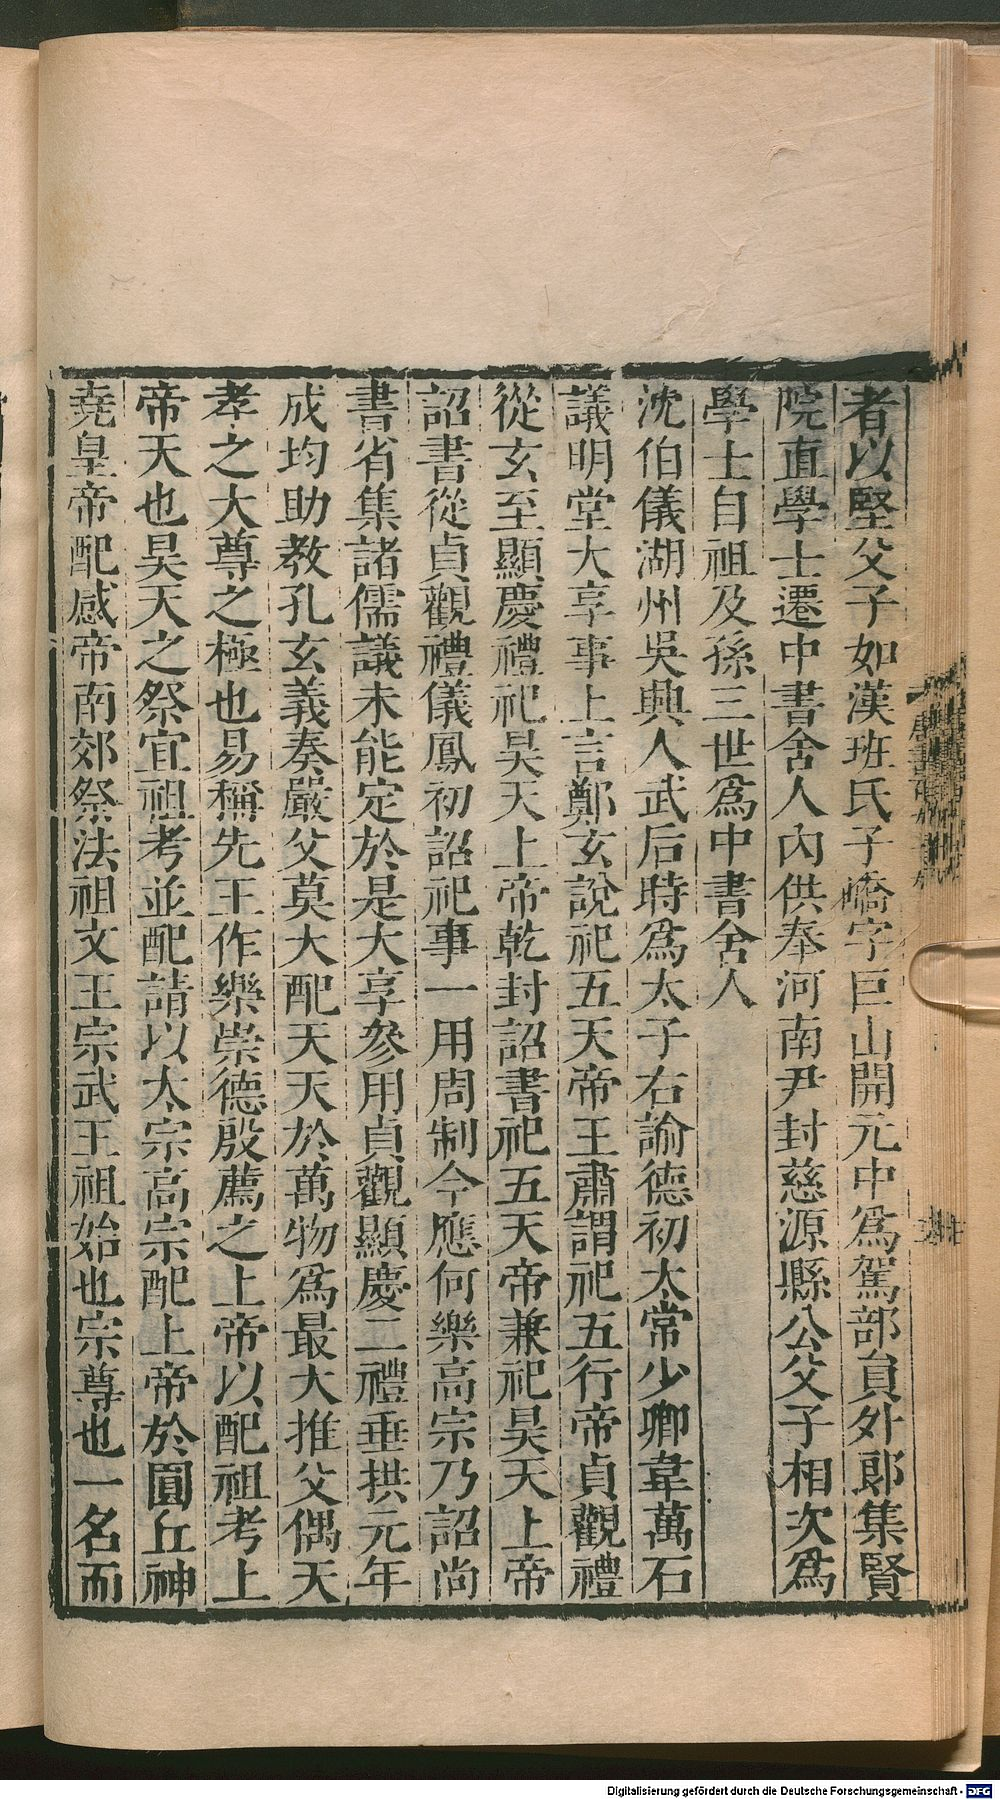 者以堅父子如漢班氏子嶠字巨山開元中爲駕部員外郎集賢
院直學士遷中書舍人內供奉河南尹封慈源縣公父子相次爲
學士自祖及孫三世爲中書舍人
沈伯儀湖州吳興人武后時爲太子右諭德初太常少卿韋萬石
議明堂大享事上言鄭玄說祀五天帝王肅謂祀五行帝貞觀禮
從玄至顯慶禮祀昊天上帝乾封詔書祀五天帝兼祀昊天上帝
詔書從貞觀禮儀鳳初詔祀事一用周制今應何樂高宗乃詔尚
書省集諸儒議未能定於是大享參用貞觀顯慶二禮垂拱元年
成均助教孔玄義奏嚴父莫大配天天於萬物爲最大推父偶天
孝之大尊之極也易稱先王作樂崇德殷薦之上帝以配祖考上
帝天也昊天之祭宜祖考並配請以太宗高宗配上帝於圓丘神
堯皇帝配感帝南郊祭法祖文王宗武王祖始也宗尊也一名而
Digitalisierung gefördert durch die Deutsche Forschungsgemeinschaft - DFG